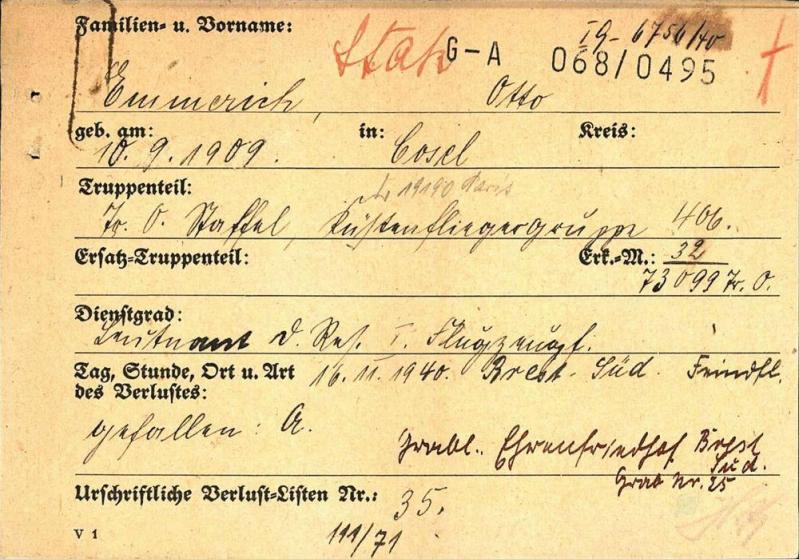 Familien- u. Vorname:
Stak G-A
IG-6756/40
068/0495
Emmerich, Otto
geb. am: in: Kreis:
10.9.1909. Cosel
Truppenteil:
Lr 19190 Paris
Tr. O. Staffel, Küstenfliegergruppe 406.
Ersatz-Truppenteil: Erk.-M.: 32
73099 Tr. O.
Dienstgrad:
Leutnant d. Res. I. Flugzeugf.
Tag, Stunde, Ort u. Art 16. 11. 1940. Brest-Süd. Feindfl.
des Verlustes:
gefallen: A.
Grabl.: Ehrenfriedhof Brest
Süd.
Grab Nr. 25
Urschriftliche Verlust-Listen Nr.: 35.
V 1
199/71